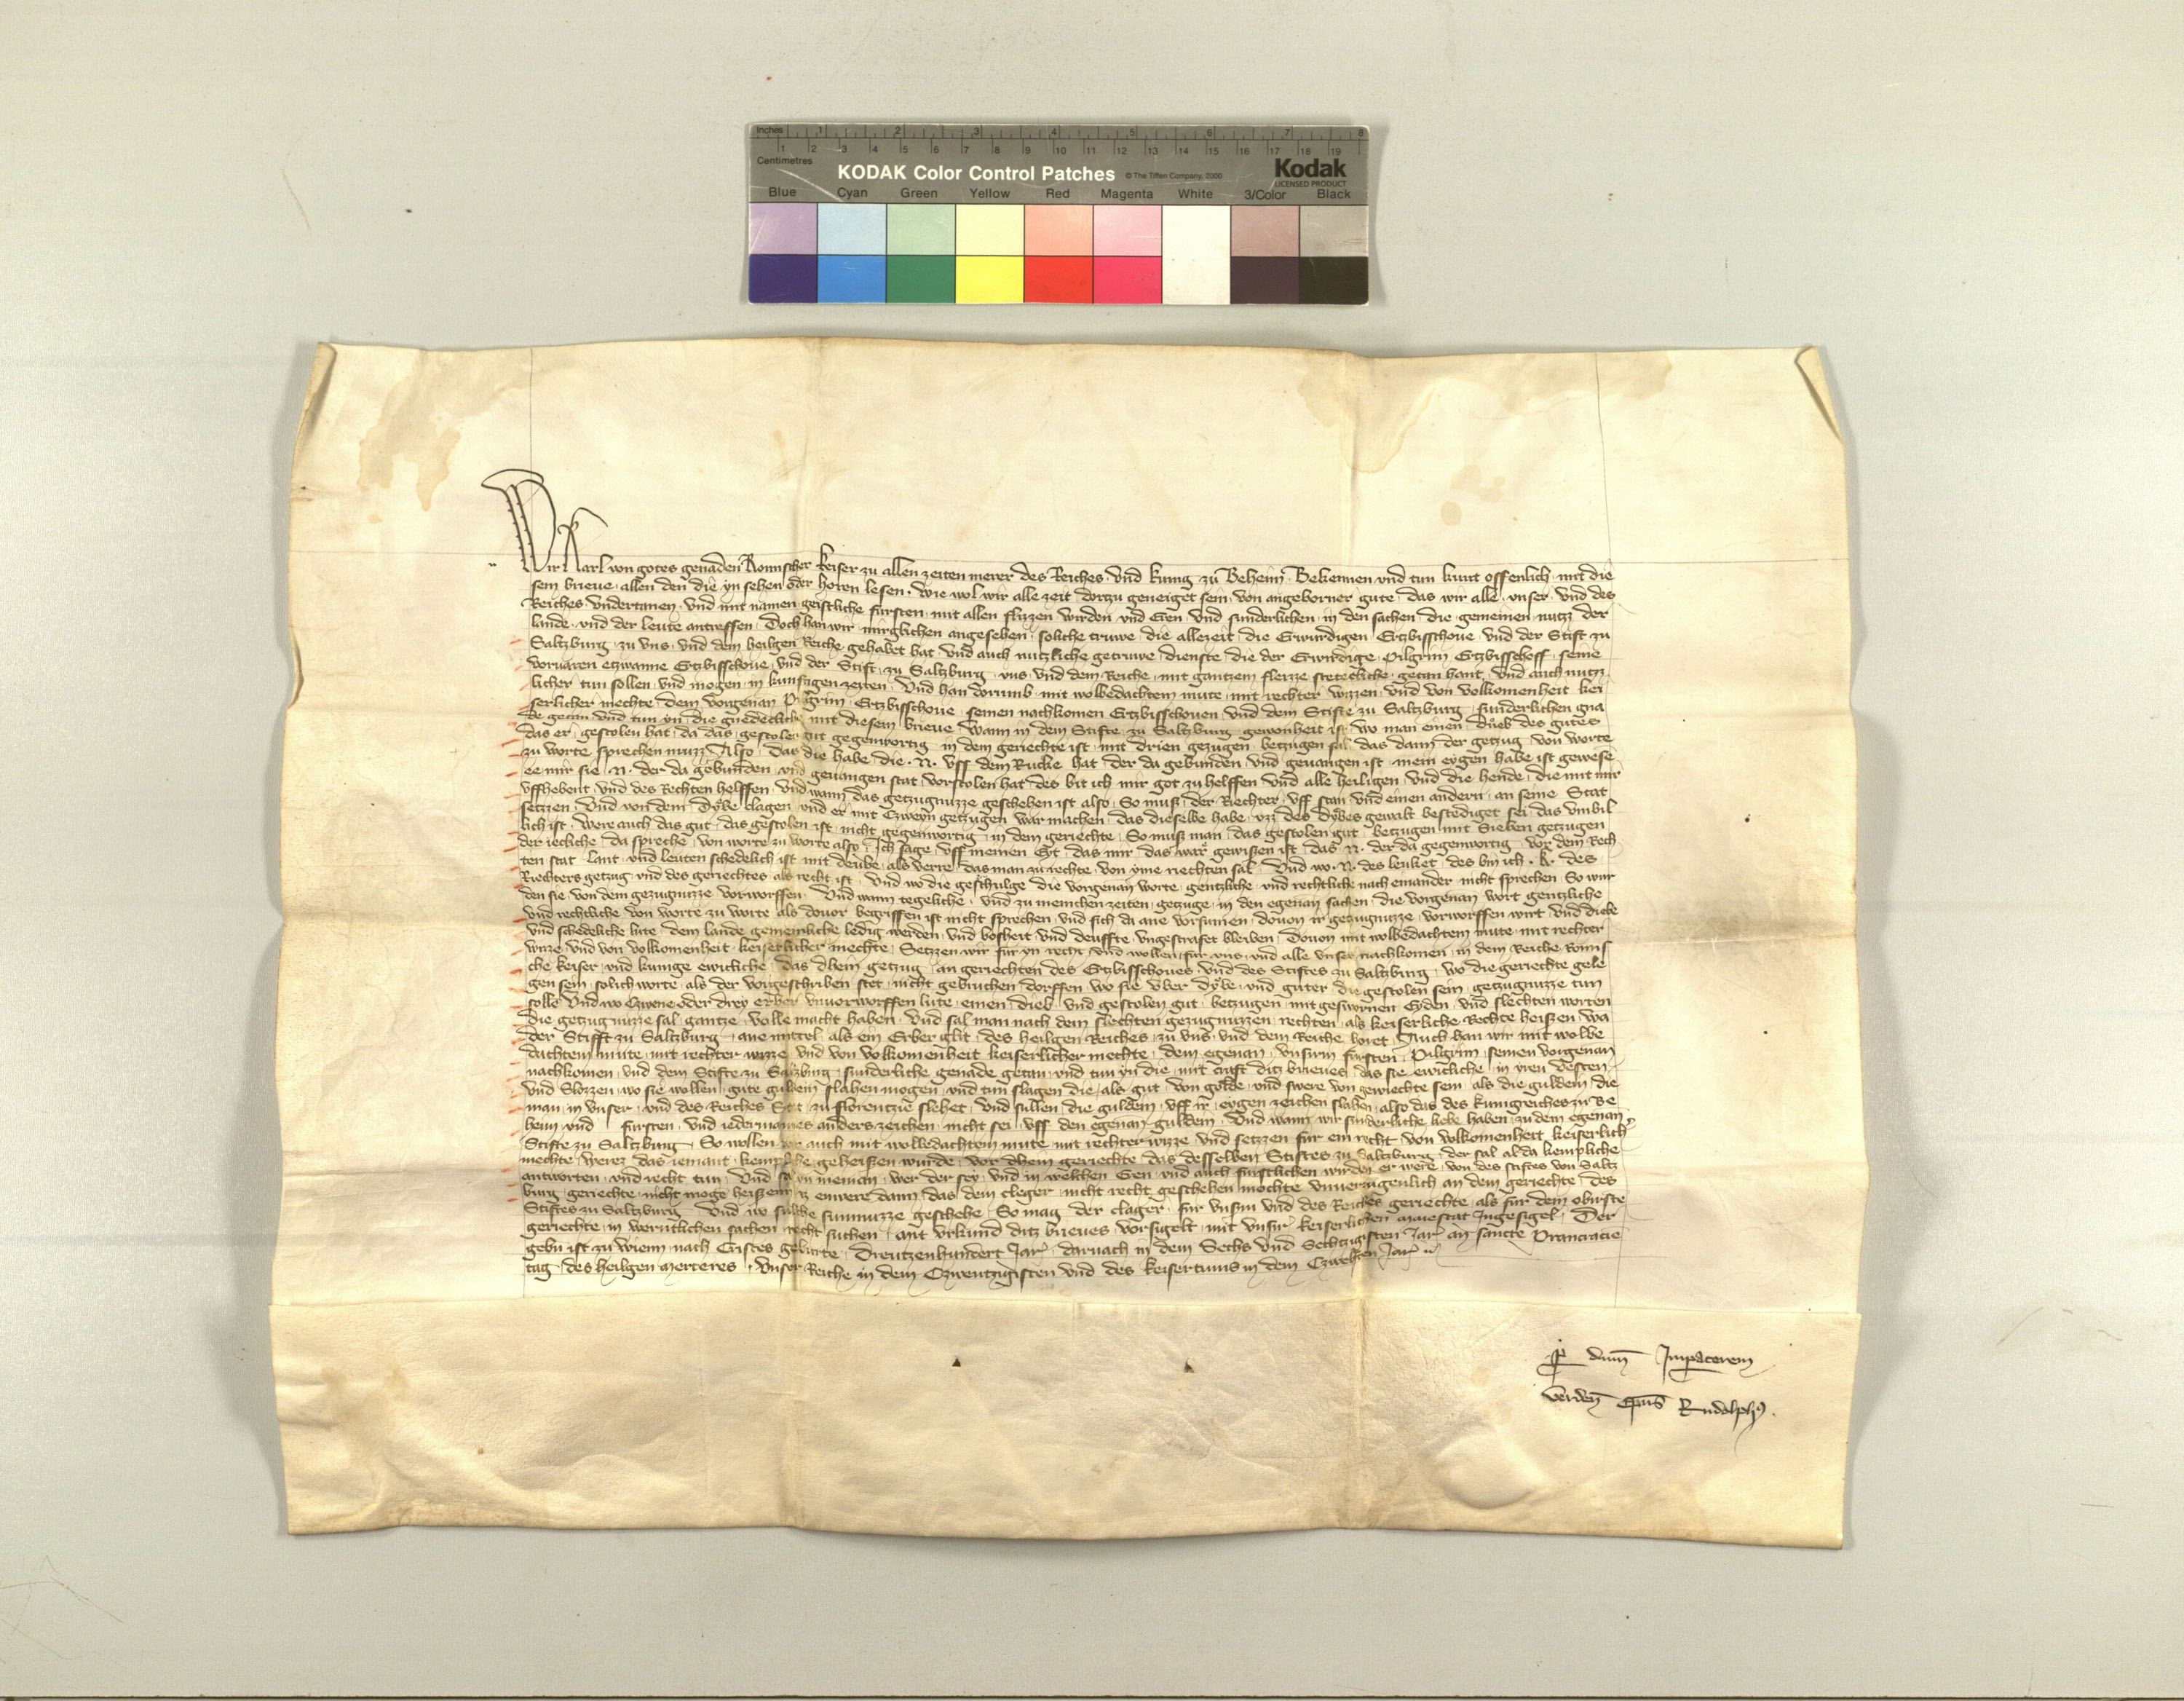 Inches 1 2 3 4 5 6 7 8
Centimetres 1 2 3 4 5 6 7 8 9 10 11 12 13 14 15 16 17 18 19
KODAK Color Control Patches © The Tiffen Company, 2000 Kodak
LICENSED PRODUCT
Blue Cyan Green Yellow Red Magenta White 3/Color Black
Wir Karl von gotes genaden Romischer keiser zu allen zeiten merer des Reiches und kunig zu Beheim Bekennen und tun kunt offenlich mit die
sem brieue allen den die yn sehen oder horen lesen. Wie wol wir alle zeit dortzu geneiget sein von angeborner gute das wir alle unser und des
Reiches undertanen und mit namen geistliche fursten mit allen flizzen wirden und Eren und sunderlichen in den sachen die gemeinen nutz der
lande und der leute antreffen Doch han wir angesehen soliche truwe die allezeit die Erwirdigen Ertzbisschoue und der Stift zu
Saltzburg zu uns und dem heiligen Reiche gehabet hat und auch nutzliche getruwe dienste die der Erwirdige Pilgrim Ertzbisschoff seine
voruaren etzwanne Ertzbisschoue und der Stift zu Saltzburg uns und dem Reiche mit gantzem fleizze stetecliche getan hant und auch nutz
licher tun sollen und mogen in kunftigen zeiten Und han dorumb mit wolbedachtem mute mit rechter wizzen und von volkomenheit kei
serlicher mechte dem vorgenan Pilgrim Ertzbisschoue seinen nachkomen Ertzbisschouen und dem Stifte zu Saltzburg sunderlichen gna
de getan und tun yn die gnedeclich mit diesem brieue Wann in dem Stifte zu Saltzburg gewonheit ist wo man einen dueb des gutes
das er gestolen hat da das gestolen gut gegenwortig in dem geriechte ist mit drien gezugen betzugen sal das dann der getzug von worte
zu worte sprechen muzz Also Das die habe die .N. uff dem Rucke hat der da gebunden und geuangen ist mein eygen habe ist gewese
ee mir sie .N. der da gebunden und geuangen stat vorstolen hat des bit ich mir got zu helffen und alle heiligen und die hende die mit mir
uffhebent und des Rechten helffen Und wann das getzugnuzze geschehen ist also So muß der Riechter uff stan und einen andern an seine Stat
setzzen Und von dem Dybe clagen und er mit Czweyn getzugen war machen das dieselbe habe uzz des dybes gewalt bestediget sei das unbil
lich ist Were auch das gut das gestolen ist nicht gegenwortig in dem geriechte So muß man das gestolen gut betzugen mit Sieben getzugen
der iecliche da spreche von worte zu worte also Ich sage uff meinen Eyt das mir das war gewißen ist das N. der da gegenwortig vor dem Rech
ten stat lant und leuten schedelich ist mit deube als verre das man zu rechte von yme riechten sal Und wo .N. des leuket des bin ich .N. des
Riechters getzug und des geriechtes als recht ist Und wo die die vorgenan worte gentzliche und rechtliche nach einander nicht sprechen So wur
den sie von dem gezugnuzze vorworffen Und wann tegeliche und zu menichen zeiten getzuge in den egenan sachen die vorgenan wort gentzliche
und rechtliche von worte zu worte als douor begriffen ist nicht sprechen und sich da ane vorsumen douon ir gezugnuzze vorworffen wirt und diebe
und schedeliche lute dem lande gemeinliche ledig werden und bosheit und deuffte ungestrafet bleiben Douon mit wolbedachtem mute mit rechter
wizze und von volkomenheit keiserlicher mechte Setzzen wir fur yn recht und wollen fur uns und alle unser nachkomen in dem Reiche Romis
che keiser und kunige ewicliche das dhein getzug an geriechten des Ertzbisschoues und des Stiftes zu Saltzburg wo die geriechte gele
gen sein solich worte als der vorgeschriben stet nicht gebruchen dorffen wo sie uber dybe und guter die gestolen sein getzugnuzze tun
solle Und wo Czwene oder drey erber unuorworffen lute einen dieb und gestolen gut betzugen mit geswornen Eyden und slechten worten
Die getzugnuzze sal gantze volle macht haben Und sal man nach dem slechten gezugnuzzen rechten als keiserliche Rechte heißen Wa
der Stifft zu Saltzburg ane mittel als ein Erber glit des heilgen Reiches zu uns und dem Reiche horet Auch han wir mit wolbe
dachtem mute mit rechter wizze und von volkomenheit keiserlicher mechte dem egenan unsirm fursten Pilgrim seinen vorgenan
nachkomen und dem Stifte zu Saltzburg sunderliche genade getan und tun yn die mit craft ditz brieues das sie ewicliche in yren Vesten
und Slozzen wo sie wollen gute guldein slahen mogen und tun slagen die als gut von golde und swere von gewiechte sein als die guldein die
man in unser und des Reiches Stat zu florentzie slehet und sullen die guldein uff ir eygen zeichen slahen also das des kunigreiches zu Be
heim und fursten und iedermannes anders zeichen nicht sei uff den egenan guldein Und wann wir sunderliche liebe haben zu dem egenan
Stifte zu Saltzburg So wollen wir auch mit wolbedachtem mute mit rechter wizze und setzzen fur ein recht von volkomenheit keiserlich
mechte Werez das iemant kempfliche geheißen wurde vor dhein geriechte das desselben Stiftes zu Saltzburg der sal alda kempfliche
antworten und recht tun Und sal yn nieman wer der sey und in welchen Eren und auch furstlichen wirden er were von des stiftes von Saltz
burg geriechte nicht moge heißen iz enwere dann das dem cleger nicht recht geschehen mochte unuerzugenlich an dem geriechte des
Stiftes zu Saltzburg Und wo sulche sumnuzze geschehe So mag der clager fur unsin und des Reiches geriechte als fur dem obirste
geriechte in werntlichen sachen recht suchen Mit urkund ditz brieues vorsigelt mit unsir keiserlichen maiestat Ingesigel Der
gebn ist zu Wienn nach Cristes geburte Dreutzenhundert Jar darnach in dem Sechs und Sechtzigisten Jar an sancte Prancracie
tag des heilgen merteres Unser Reiche in dem Czwentzigisten und des keisertums in dem Czwelften Jar
p dnm Impatorem
Verden Eps Rudolphus